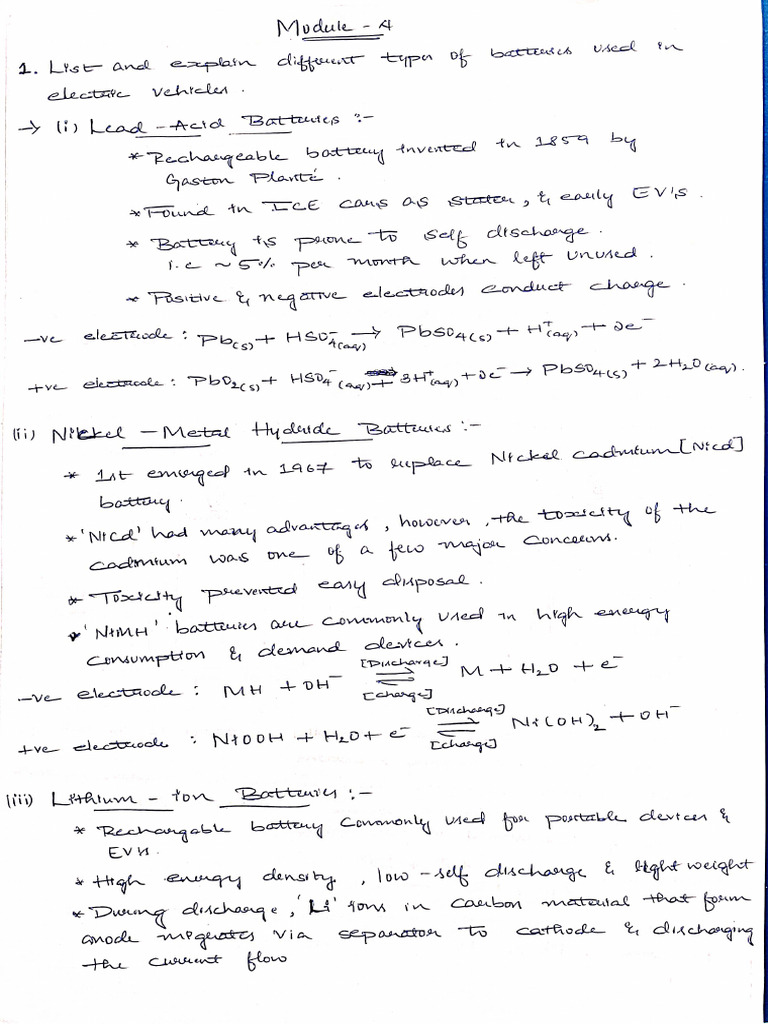 Module - 4
1. List and explain different types of batteries used in
electric vehicles.
→ (i) Lead - Acid Batteries :-
* Rechargeable battery invented in 1859 by
Gaston Planté.
* Found in ICE cars as stater, & early EV's.
* Battery is prone to self discharge.
i.e ~ 5% per month when left unused.
* Positive & negative electrodes conduct charge.
-ve electrode : Pb(s) + HSO₄⁻(aq) → PbSO₄(s) + H⁺(aq) + 2e⁻
+ve electrode : PbO₂(s) + HSO₄⁻(aq) + 3H⁺(aq) + 2e⁻ → PbSO₄(s) + 2H₂O(aq).
(ii) Nickel - Metal Hydride Batteries :-
* 1st emerged in 1967 to replace Nickel cadmium [Nicd]
battery.
* 'Nicd' had many advantages, however, the toxicity of the
cadmium was one of a few major concerns.
* Toxicity prevented easy disposal.
* 'NiMH' batteries are commonly used in high energy
consumption & demand devices.
-ve electrode : MH + OH⁻ [Discharge] ⇌ [charge] M + H₂O + e⁻
+ve electrode : NiOOH + H₂O + e⁻ [Discharge] ⇌ [charge] Ni(OH)₂ + OH⁻
(iii) Lithium - ion Batteries :-
* Rechargable battery commonly used for portable devices &
EV's.
* High energy density, low-self discharge & light weight
* During discharge, 'Li' ions in carbon material that form
anode migrates via separator to cathode & discharging
the current flow